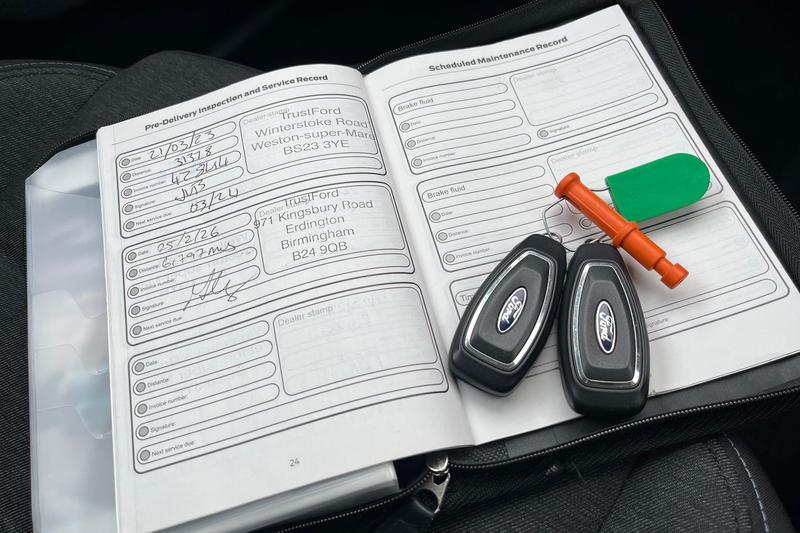 Pre-Delivery Inspection and Service Record
Date: 21/03/23
Distance: 31378
Invoice number:
Signature: JMS
Next service due: 03/24
Dealer stamp
TrustFord
Winterstoke Road
Weston-super-Mare
BS23 3YE
Date: 25/2/26
Distance: 6,797 mls
Invoice number:
Signature:
Next service due:
TrustFord
971 Kingsbury Road
Erdington
Birmingham
B24 9QB
Date:
Distance:
Invoice number:
Signature:
Next service due:
Dealer stamp
24
Scheduled Maintenance Record
Brake fluid
Date:
Distance:
Invoice number:
Dealer stamp
Signature:
Brake fluid
Date:
Distance:
Invoice number:
Dealer stamp
Signature:
Ford
Ford